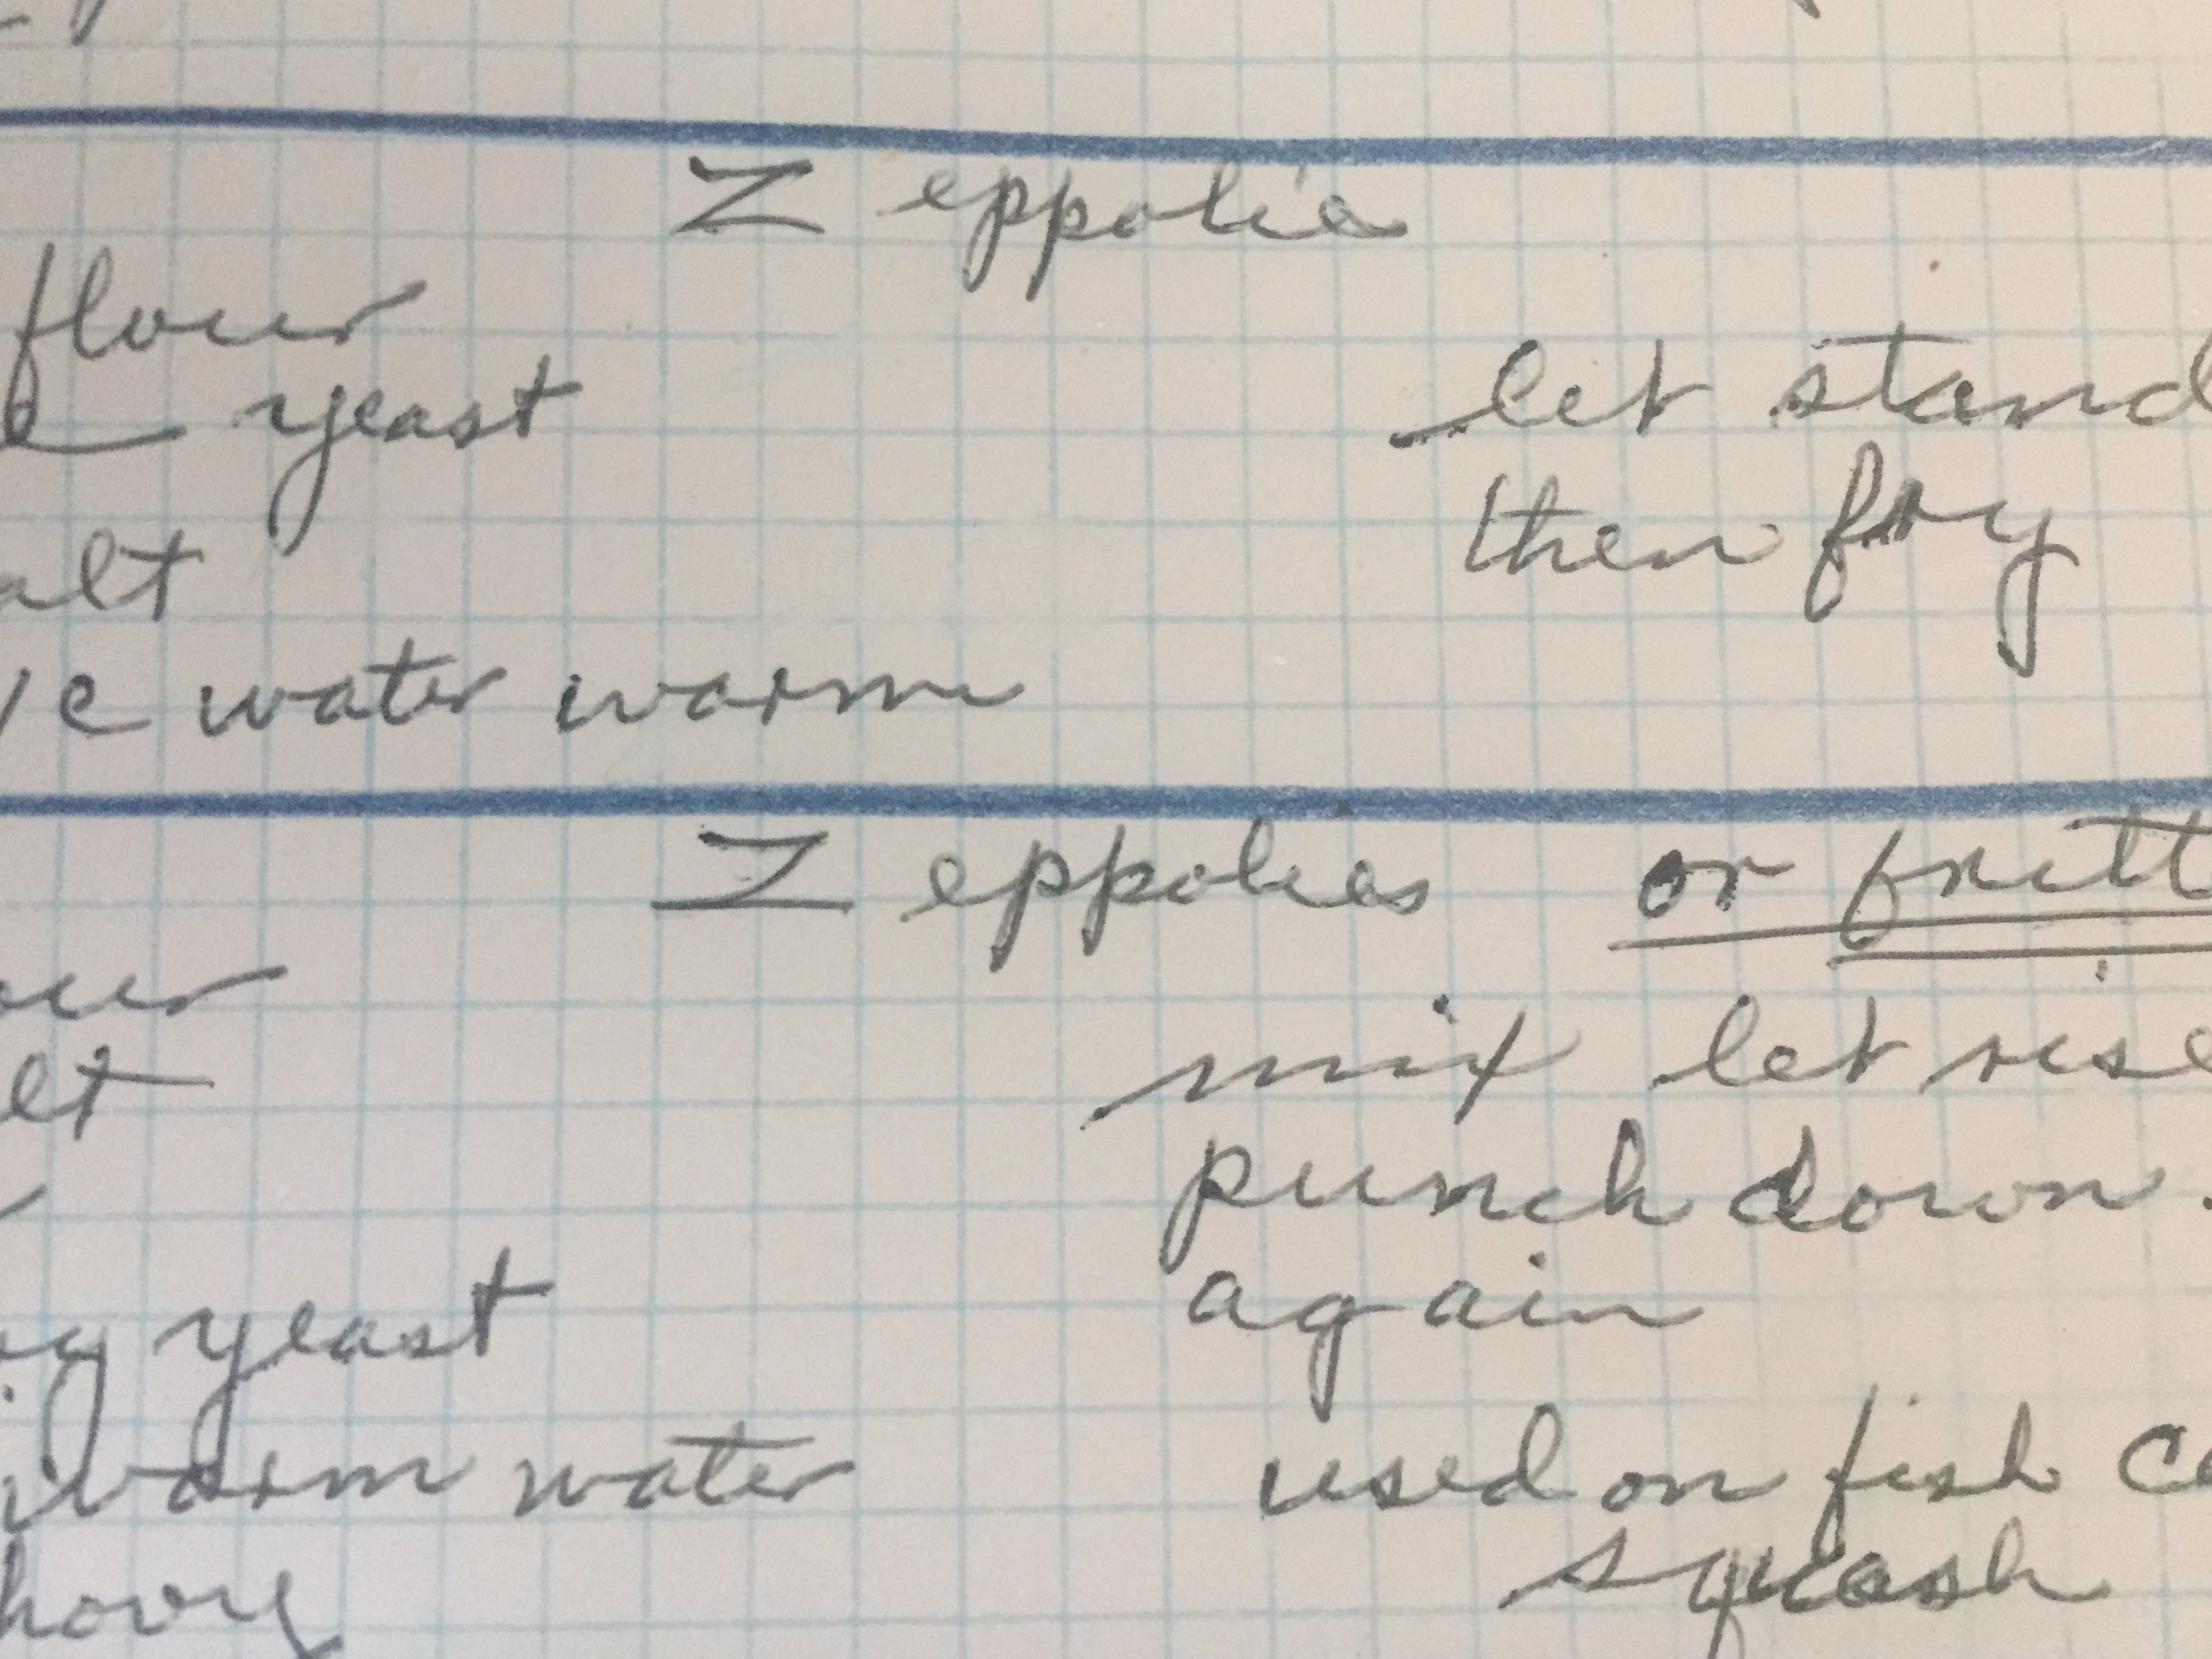 Zeppolie
flour
yeast
let stand
then fry
alt
c water warm
Zeppolies or fritt
our
mix let rise
lt
punch down.
again
yeast
warm water
used on fish
hovy
squash